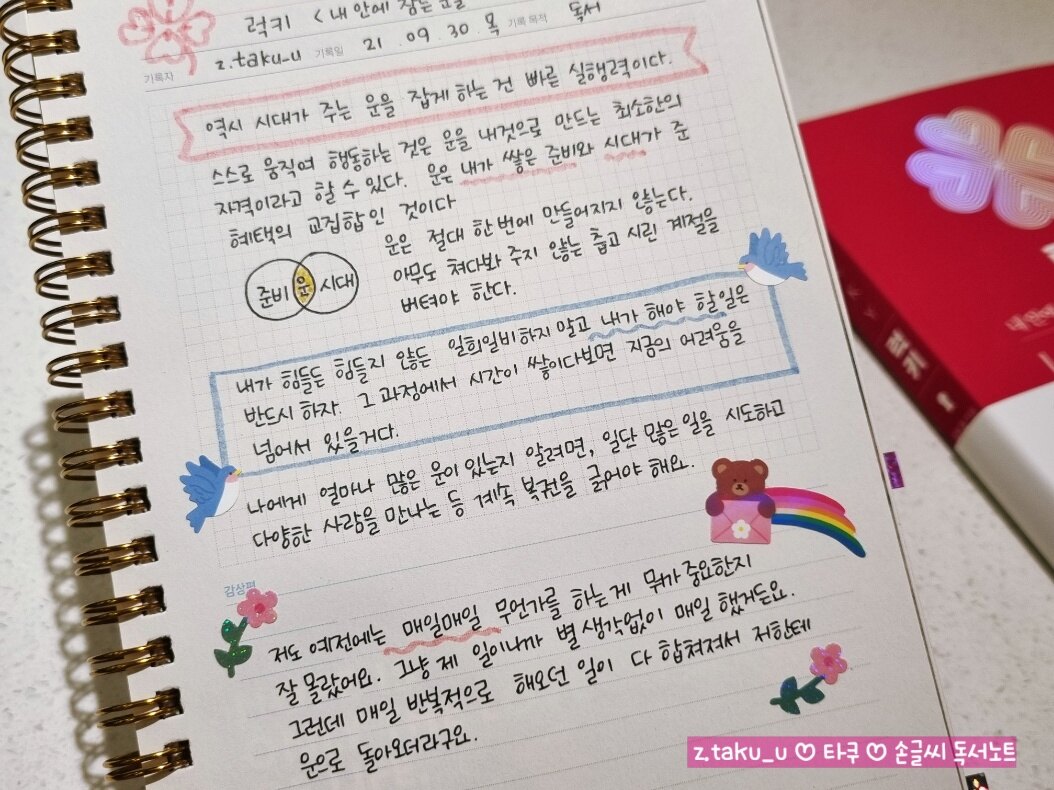 럭키 < 내 안에 잠든 운을
기록자 z.taku_u 기록일 21 . 09 . 30 . 목 기록 목적 독서
역시 시대가 주는 운을 잡게 하는 건 빠른 실행력이다.
스스로 움직여 행동하는 것은 운을 내것으로 만드는 최소한의
자격이라고 할 수 있다. 운은 내가 쌓은 준비와 시대가 준
혜택의 교집합인 것이다
준비 운 시대
운은 절대 한 번에 만들어지지 않는다.
아무도 쳐다봐 주지 않는 춥고 시린 계절을
버텨야 한다.
내가 힘들든 힘들지 않든 일희일비하지 말고 내가 해야 할 일은
반드시 하자. 그 과정에서 시간이 쌓이다보면 지금의 어려움을
넘어서 있을거다.
나에게 얼마나 많은 운이 있는지 알려면, 일단 많은 일을 시도하고
다양한 사람을 만나는 등 계속 복권을 긁어야 해요.
감상평
저도 예전에는 매일매일 무언가를 하는게 뭐가 중요한지
잘 몰랐어요. 그냥 제 일이니까 별 생각없이 매일 했거든요.
그런데 매일 반복적으로 해오던 일이 다 합쳐져서 저한테
운으로 돌아오더라구요.
럭키
z.taku_u ♡ 타쿠 ♡ 손글씨 독서노트